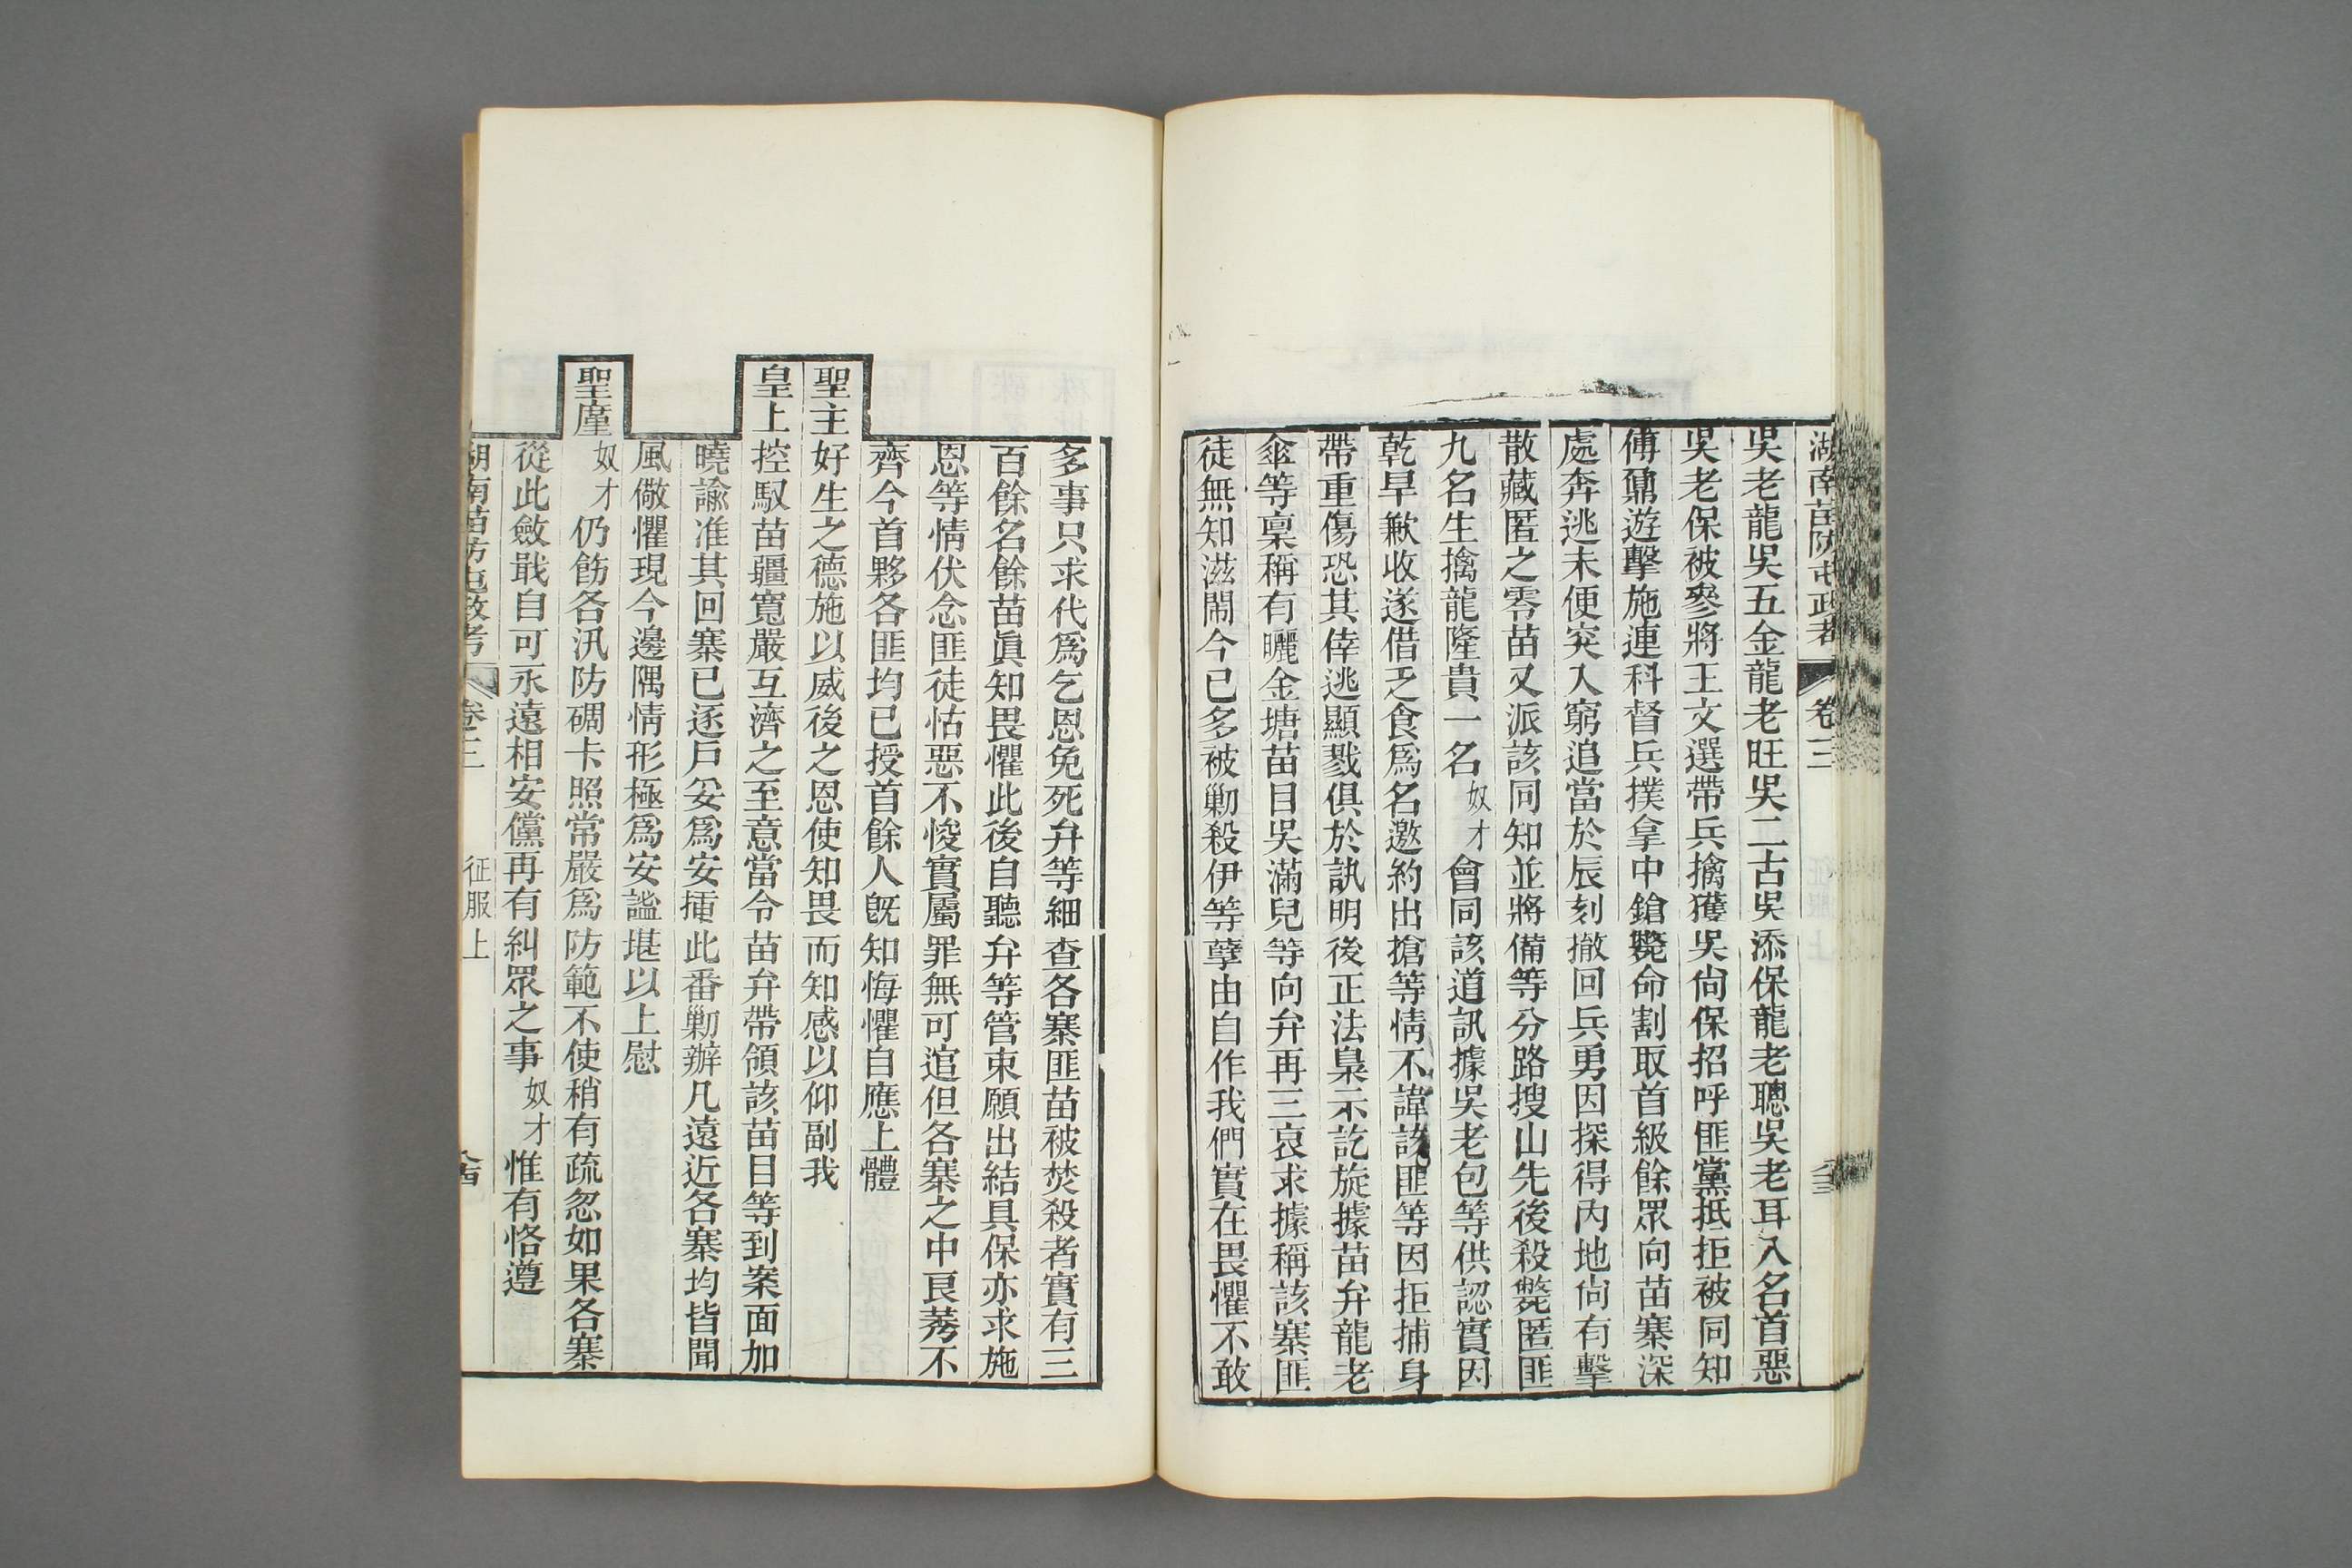 湖南苗防屯政考 卷三
吳老龍吳五金龍老旺吳二古吳添保龍老聰吳老耳入名首惡
吳老保被參將王文選帶兵擒獲吳尙保招呼匪黨抵拒被同知
傅鼐遊擊施連科督兵撲拿中鎗斃命割取首級餘眾向苗寨深
處奔逃未便突入窮追當於辰刻撤回兵勇因探得內地尙有擊
散藏匿之零苗又派該同知並將備等分路搜山先後殺斃匿匪
九名生擒龍隆貴一名奴才會同該道訊據吳老包等供認實因
乾旱歉收遂借乏食爲名邀約出搶等情不諱該匪等因拒捕身
帶重傷恐其倖逃顯戮俱於訊明後正法梟示訖旋據苗弁龍老
傘等稟稱有曬金塘苗目吳滿兒等向弁再三哀求據稱該寨匪
徒無知滋鬧今已多被勦殺伊等孽由自作我們實在畏懼不敢
多事只求代爲乞恩免死弁等細查各寨匪苗被焚殺者實有三
百餘名餘苗眞知畏懼此後自聽弁等管束願出結具保亦求施
恩等情伏念匪徒怙惡不悛實屬罪無可逭但各寨之中良莠不
齊今首夥各匪均已授首餘人旣知悔懼自應上體
聖主好生之德施以威後之恩使知畏而知感以仰副我
皇上控馭苗疆寬嚴互濟之至意當令苗弁帶領該苗目等到案面加
曉諭准其回寨已逐戶妥爲安揷此番勦辦凡遠近各寨均皆聞
風儆懼現今邊隅情形極爲安謐堪以上慰
聖廑奴才仍飭各汛防碉卡照常嚴爲防範不使稍有疏忽如果各寨
從此斂戢自可永遠相安儻再有糾眾之事奴才惟有恪遵
湖南苗防屯政考 卷三 征服上